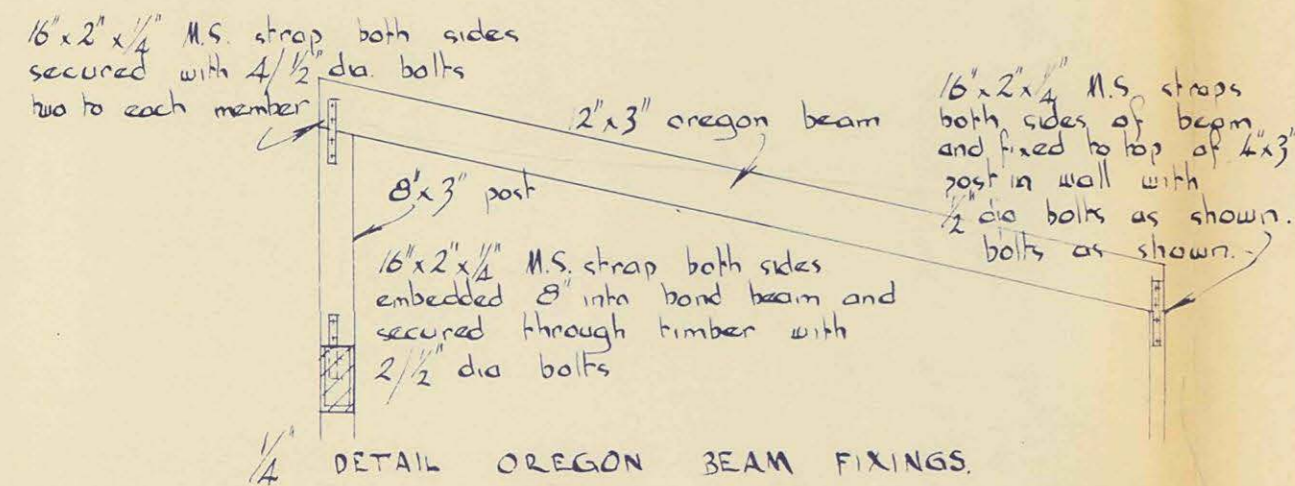 16" x 2" x 1/4" M.S. strap both sides
secured with 4/ 1/2" dia. bolts
two to each member
2" x 3" oregon beam
16" x 2" x 1/4" M.S. straps
both sides of beam
and fixed to top of 4" x 3"
post in wall with
1/2" dia bolts as shown.
bolts as shown.
8' x 3" post
16" x 2" x 1/4" M.S. strap both sides
embedded 8" into bond beam and
secured through timber with
2/ 1/2" dia bolts
1/4" DETAIL OREGON BEAM FIXINGS.